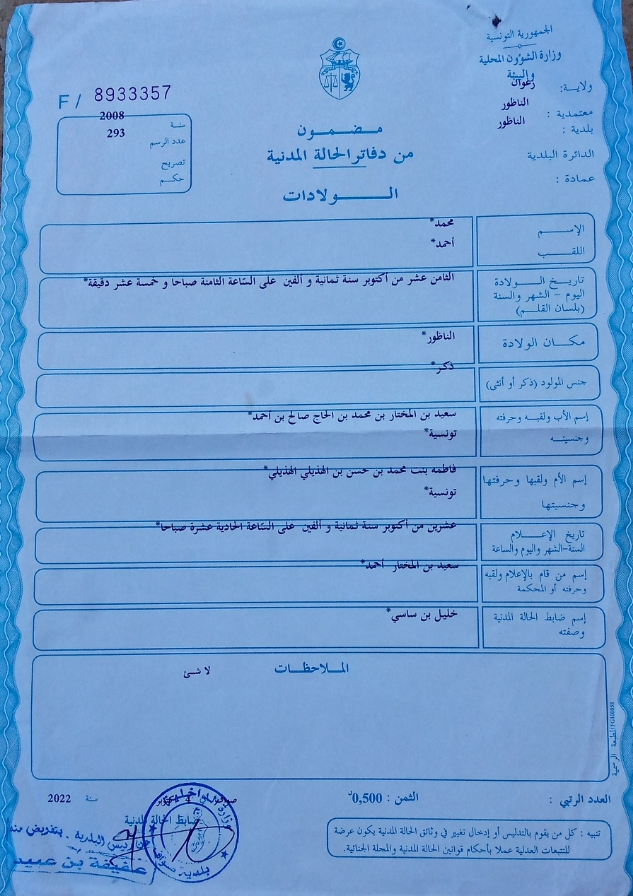 الجمهورية التونسية
وزارة الشؤون المحلية
والبيئة
ولاية: زغوان
معتمدية: الناظور
بلدية: الناظور
الدائرة البلدية
عمادة:
F/ 8933357
سنة 2008
عدد الرسم 293
تصريح
حكم
مضمون
من دفاتر الحالة المدنية
الولادات
الإسم محمد*
اللقب أحمد*
تاريخ الولادة الثامن عشر من أكتوبر سنة ثمانية و ألفين على السّاعة الثامنة صباحا و خمسة عشر دقيقة*
اليوم - الشهر والسنة
(بلسان القلم)
مكان الولادة الناظور*
جنس المولود (ذكر أو أنثى) ذكر*
إسم الأب ولقبه وحرفته سعيد بن المختار بن محمد بن الحاج صالح بن أحمد*
وجنسيته تونسية*
إسم الأم ولقبها وحرفتها فاطمة بنت محمد بن حسن بن الهذيلي الهذيلي*
وجنسيتها تونسية*
تاريخ الإعلام عشرين من أكتوبر سنة ثمانية و ألفين على السّاعة الحادية عشرة صباحا*
السنة-الشهر واليوم والساعة
إسم من قام بالإعلام ولقبه سعيد بن المختار أحمد*
وحرفته أو المحكمة
إسم ضابط الحالة المدنية خليل بن ساسي*
وصفته
الملاحظات
لا شئ
العدد الرتبي :
الثمن : 0,500
سنة 2022
ضابط الحالة المدنية
تنبيه : كل من يقوم بالتدليس أو إدخال تغيير في وثائق الحالة المدنية يكون عرضة
للتتبعات العدلية عملا بأحكام قوانين الحالة المدنية والمجلة الجنائية.
المطبعة الرسمية